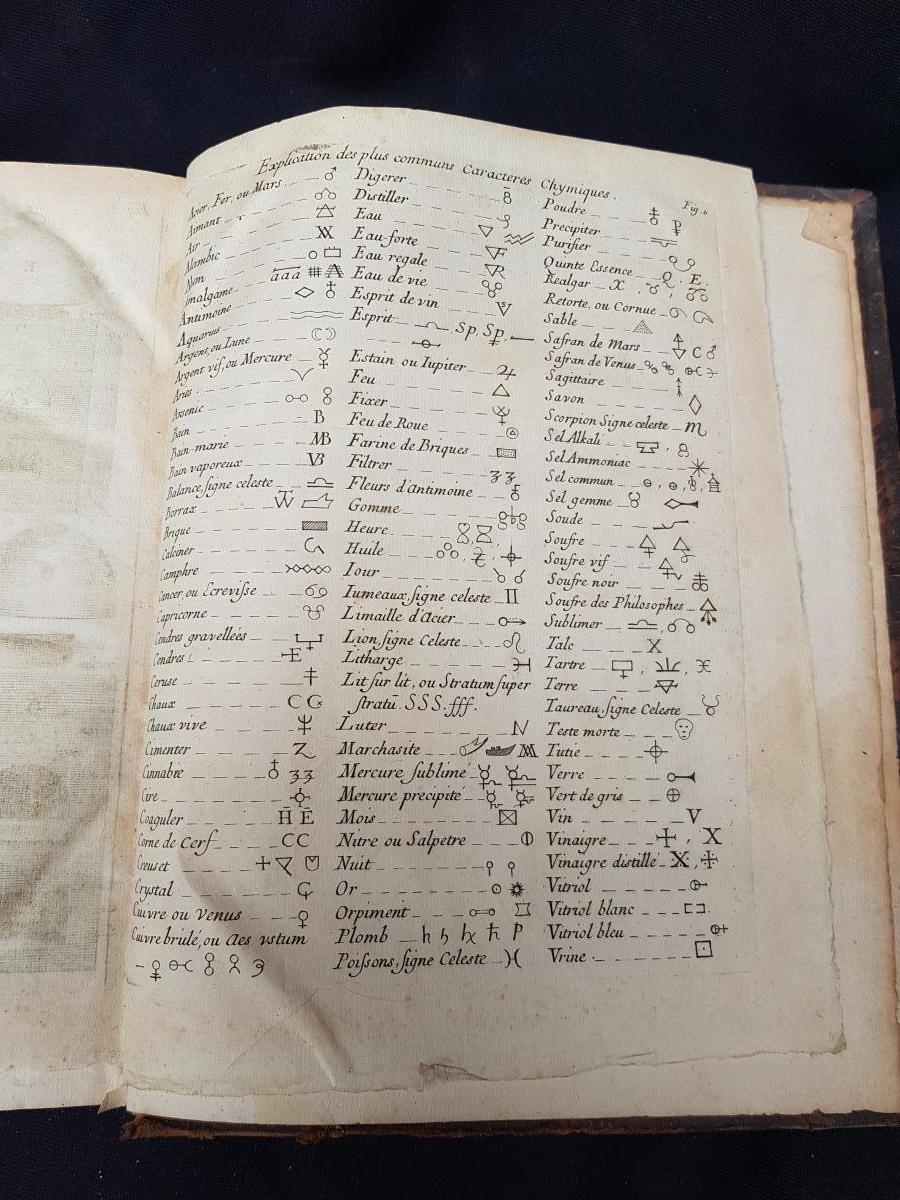 Explication des plus communs Caracteres Chymiques.
Fig. 6
Acier, Fer, ou Mars ♂
Aimant
Air
Alambic XX
Alum
Amalgame aaa
Antimoine ♁
Aquarius
Argent, ou Lune ☾☽
Argent vif, ou Mercure ☿
Aries
Arsenic
Bain B
Bain marie MB
Bain vaporeux VB
Balance, signe celeste ♎
Borrax
Brique
Calciner
Camphre
Cancer, ou Ecrevisse ♋
Capricorne ♑
Cendres gravellées
Cendres E
Ceruse
Chaux C
Chaux vive
Cimenter Z
Cinnabre ♁ 33
Cire
Coaguler H̄ Ē
Corne de Cerf CC
Creuset + ▽
Crystal
Cuivre ou Venus ♀
Cuivre brulé, ou Aes vstum
Digerer 8
Distiller
Eau ▽
Eau-forte ▽F
Eau regale ▽R
Eau de vie
Esprit de vin V
Esprit Sp, Sp,
Estain ou Iupiter ♃
Feu △
Fixer
Feu de Roue
Farine de Briques
Filtrer 33
Fleurs d'antimoine
Gomme
Heure
Huile
Iour
Iumeaux, signe celeste ♊
Limaille d'Acier
Lion, signe Celeste ♌
Litharge
Lit sur lit, ou Stratum super
stratū. SSS. fff.
Luter N
Marchasite
Mercure sublimé ☿
Mercure precipité ☿
Mois ⊠
Nitre ou Salpetre ⦶
Nuit
Or ☉
Orpiment
Plomb ♄
Poissons, signe Celeste ♓
Poudre
Precipiter
Purifier
Quinte Essence Q. E.
Realgar X
Retorte, ou Cornue
Sable
Safran de Mars C ♂
Safran de Venus
Sagittaire
Savon
Scorpion Signe celeste ♏
Sel Alkali 8
Sel Ammoniac
Sel commun ⊖
Sel gemme
Soude
Soufre 🜍
Soufre vif
Soufre noir
Soufre des Philosophes
Sublimer
Talc X
Tartre
Terre
Taureau, signe Celeste ♉
Teste morte
Tutie
Verre
Vert de gris ⊕
Vin V
Vinaigre +, X
Vinaigre distillé
Vitriol
Vitriol blanc
Vitriol bleu
Vrine ⊡